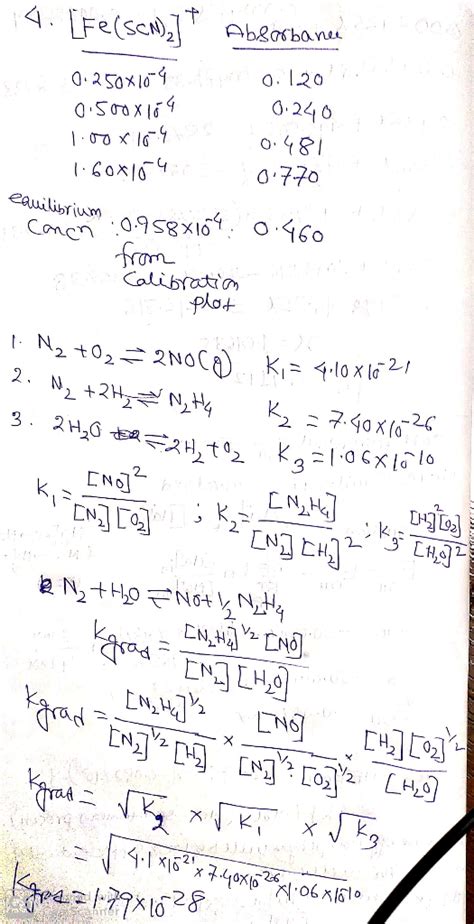 4. [Fe(SCN)₂]⁺ Absorbance
0.250x10⁻⁴ 0.120
0.500x10⁻⁴ 0.240
1.00 x 10⁻⁴ 0.481
1.60x10⁻⁴ 0.770
equilibrium
Concn : 0.958x10⁻⁴ : 0.460
from
Calibration
plot
1. N₂ + O₂ ⇌ 2NO(g) K₁ = 4.10x10⁻²¹
2. N₂ + 2H₂ ⇌ N₂H₄ K₂ = 7.40x10⁻²⁶
3. 2H₂O ⇌ 2H₂ + O₂ K₃ = 1.06x10⁻¹⁰
K₁ = [NO]² / [N₂] [O₂] ; K₂ = [N₂H₄] / [N₂] [H₂]² ; K₃ = [H₂]² [O₂] / [H₂O]²
N₂ + H₂O ⇌ NO + ½ N₂H₄
Kgrad = [N₂H₄]^½ [NO] / [N₂] [H₂O]
Kgrad = [N₂H₄]^½ / [N₂]^½ [H₂] x [NO] / [N₂]^½ · [O₂]^½ x [H₂] [O₂]^½ / [H₂O]
Kgrad = √K₂ x √K₁ x √K₃
= √4.1x10⁻²¹ x 7.40x10⁻²⁶ x 1.06x10⁻¹⁰
Kgrad = 1.79x10⁻²⁸